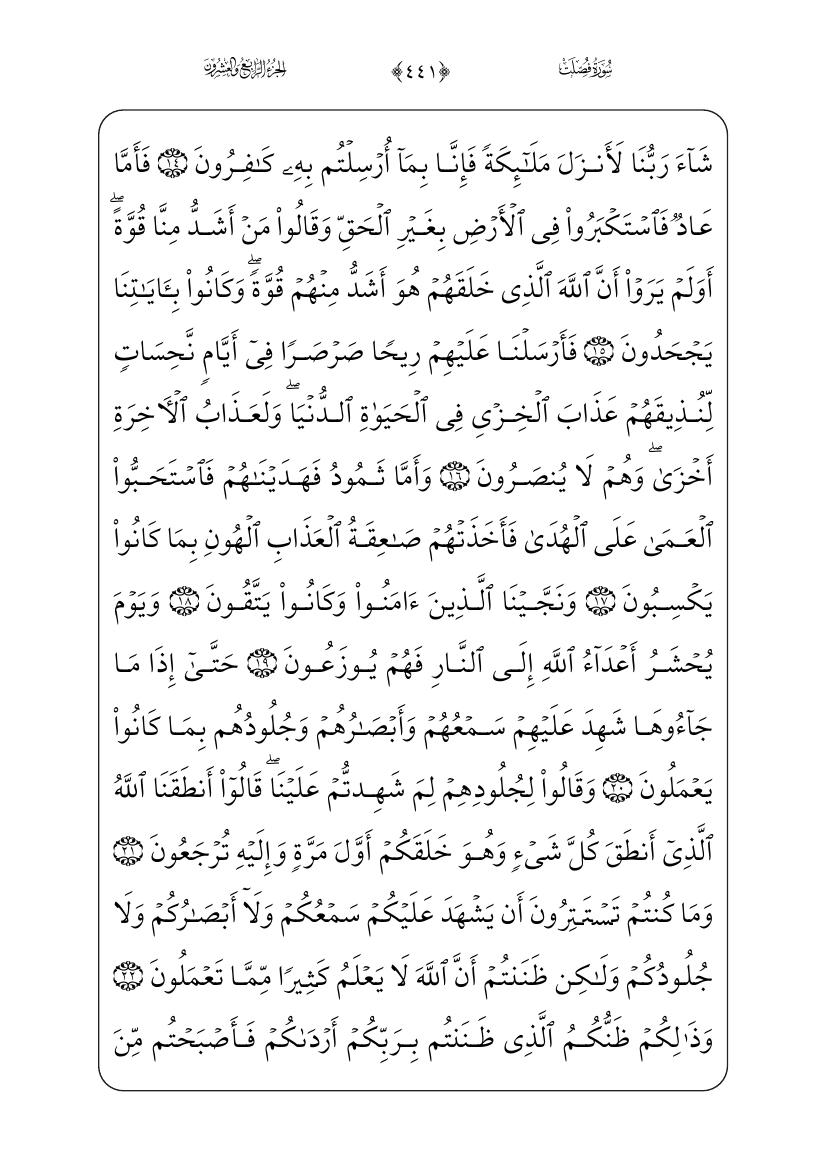 سُورَةُ فُصِّلَتۡ ﴿٤٤١﴾ الجزء الرابع والعشرون
شَآءَ رَبُّنَا لَأَنزَلَ مَلَـٰٓئِكَةٗ فَإِنَّا بِمَآ أُرۡسِلۡتُم بِهِۦ كَـٰفِرُونَ ١٤ فَأَمَّا
عَادٞ فَٱسۡتَكۡبَرُواْ فِي ٱلۡأَرۡضِ بِغَيۡرِ ٱلۡحَقِّ وَقَالُواْ مَنۡ أَشَدُّ مِنَّا قُوَّةًۖ
أَوَلَمۡ يَرَوۡاْ أَنَّ ٱللَّهَ ٱلَّذِي خَلَقَهُمۡ هُوَ أَشَدُّ مِنۡهُمۡ قُوَّةٗۖ وَكَانُواْ بِـَٔايَٰتِنَا
يَجۡحَدُونَ ١٥ فَأَرۡسَلۡنَا عَلَيۡهِمۡ رِيحٗا صَرۡصَرٗا فِيٓ أَيَّامٖ نَّحِسَاتٖ
لِّنُذِيقَهُمۡ عَذَابَ ٱلۡخِزۡيِ فِي ٱلۡحَيَوٰةِ ٱلدُّنۡيَاۖ وَلَعَذَابُ ٱلۡأٓخِرَةِ
أَخۡزَىٰۖ وَهُمۡ لَا يُنصَرُونَ ١٦ وَأَمَّا ثَمُودُ فَهَدَيۡنَٰهُمۡ فَٱسۡتَحَبُّواْ
ٱلۡعَمَىٰ عَلَى ٱلۡهُدَىٰ فَأَخَذَتۡهُمۡ صَٰعِقَةُ ٱلۡعَذَابِ ٱلۡهُونِ بِمَا كَانُواْ
يَكۡسِبُونَ ١٧ وَنَجَّيۡنَا ٱلَّذِينَ ءَامَنُواْ وَكَانُواْ يَتَّقُونَ ١٨ وَيَوۡمَ
يُحۡشَرُ أَعۡدَآءُ ٱللَّهِ إِلَى ٱلنَّارِ فَهُمۡ يُوزَعُونَ ١٩ حَتَّىٰٓ إِذَا مَا
جَآءُوهَا شَهِدَ عَلَيۡهِمۡ سَمۡعُهُمۡ وَأَبۡصَٰرُهُمۡ وَجُلُودُهُم بِمَا كَانُواْ
يَعۡمَلُونَ ٢٠ وَقَالُواْ لِجُلُودِهِمۡ لِمَ شَهِدتُّمۡ عَلَيۡنَاۖ قَالُوٓاْ أَنطَقَنَا ٱللَّهُ
ٱلَّذِيٓ أَنطَقَ كُلَّ شَيۡءٖ وَهُوَ خَلَقَكُمۡ أَوَّلَ مَرَّةٖ وَإِلَيۡهِ تُرۡجَعُونَ ٢١
وَمَا كُنتُمۡ تَسۡتَتِرُونَ أَن يَشۡهَدَ عَلَيۡكُمۡ سَمۡعُكُمۡ وَلَآ أَبۡصَٰرُكُمۡ وَلَا
جُلُودُكُمۡ وَلَٰكِن ظَنَنتُمۡ أَنَّ ٱللَّهَ لَا يَعۡلَمُ كَثِيرٗا مِّمَّا تَعۡمَلُونَ ٢٢
وَذَٰلِكُمۡ ظَنُّكُمُ ٱلَّذِي ظَنَنتُم بِرَبِّكُمۡ أَرۡدَىٰكُمۡ فَأَصۡبَحۡتُم مِّنَ